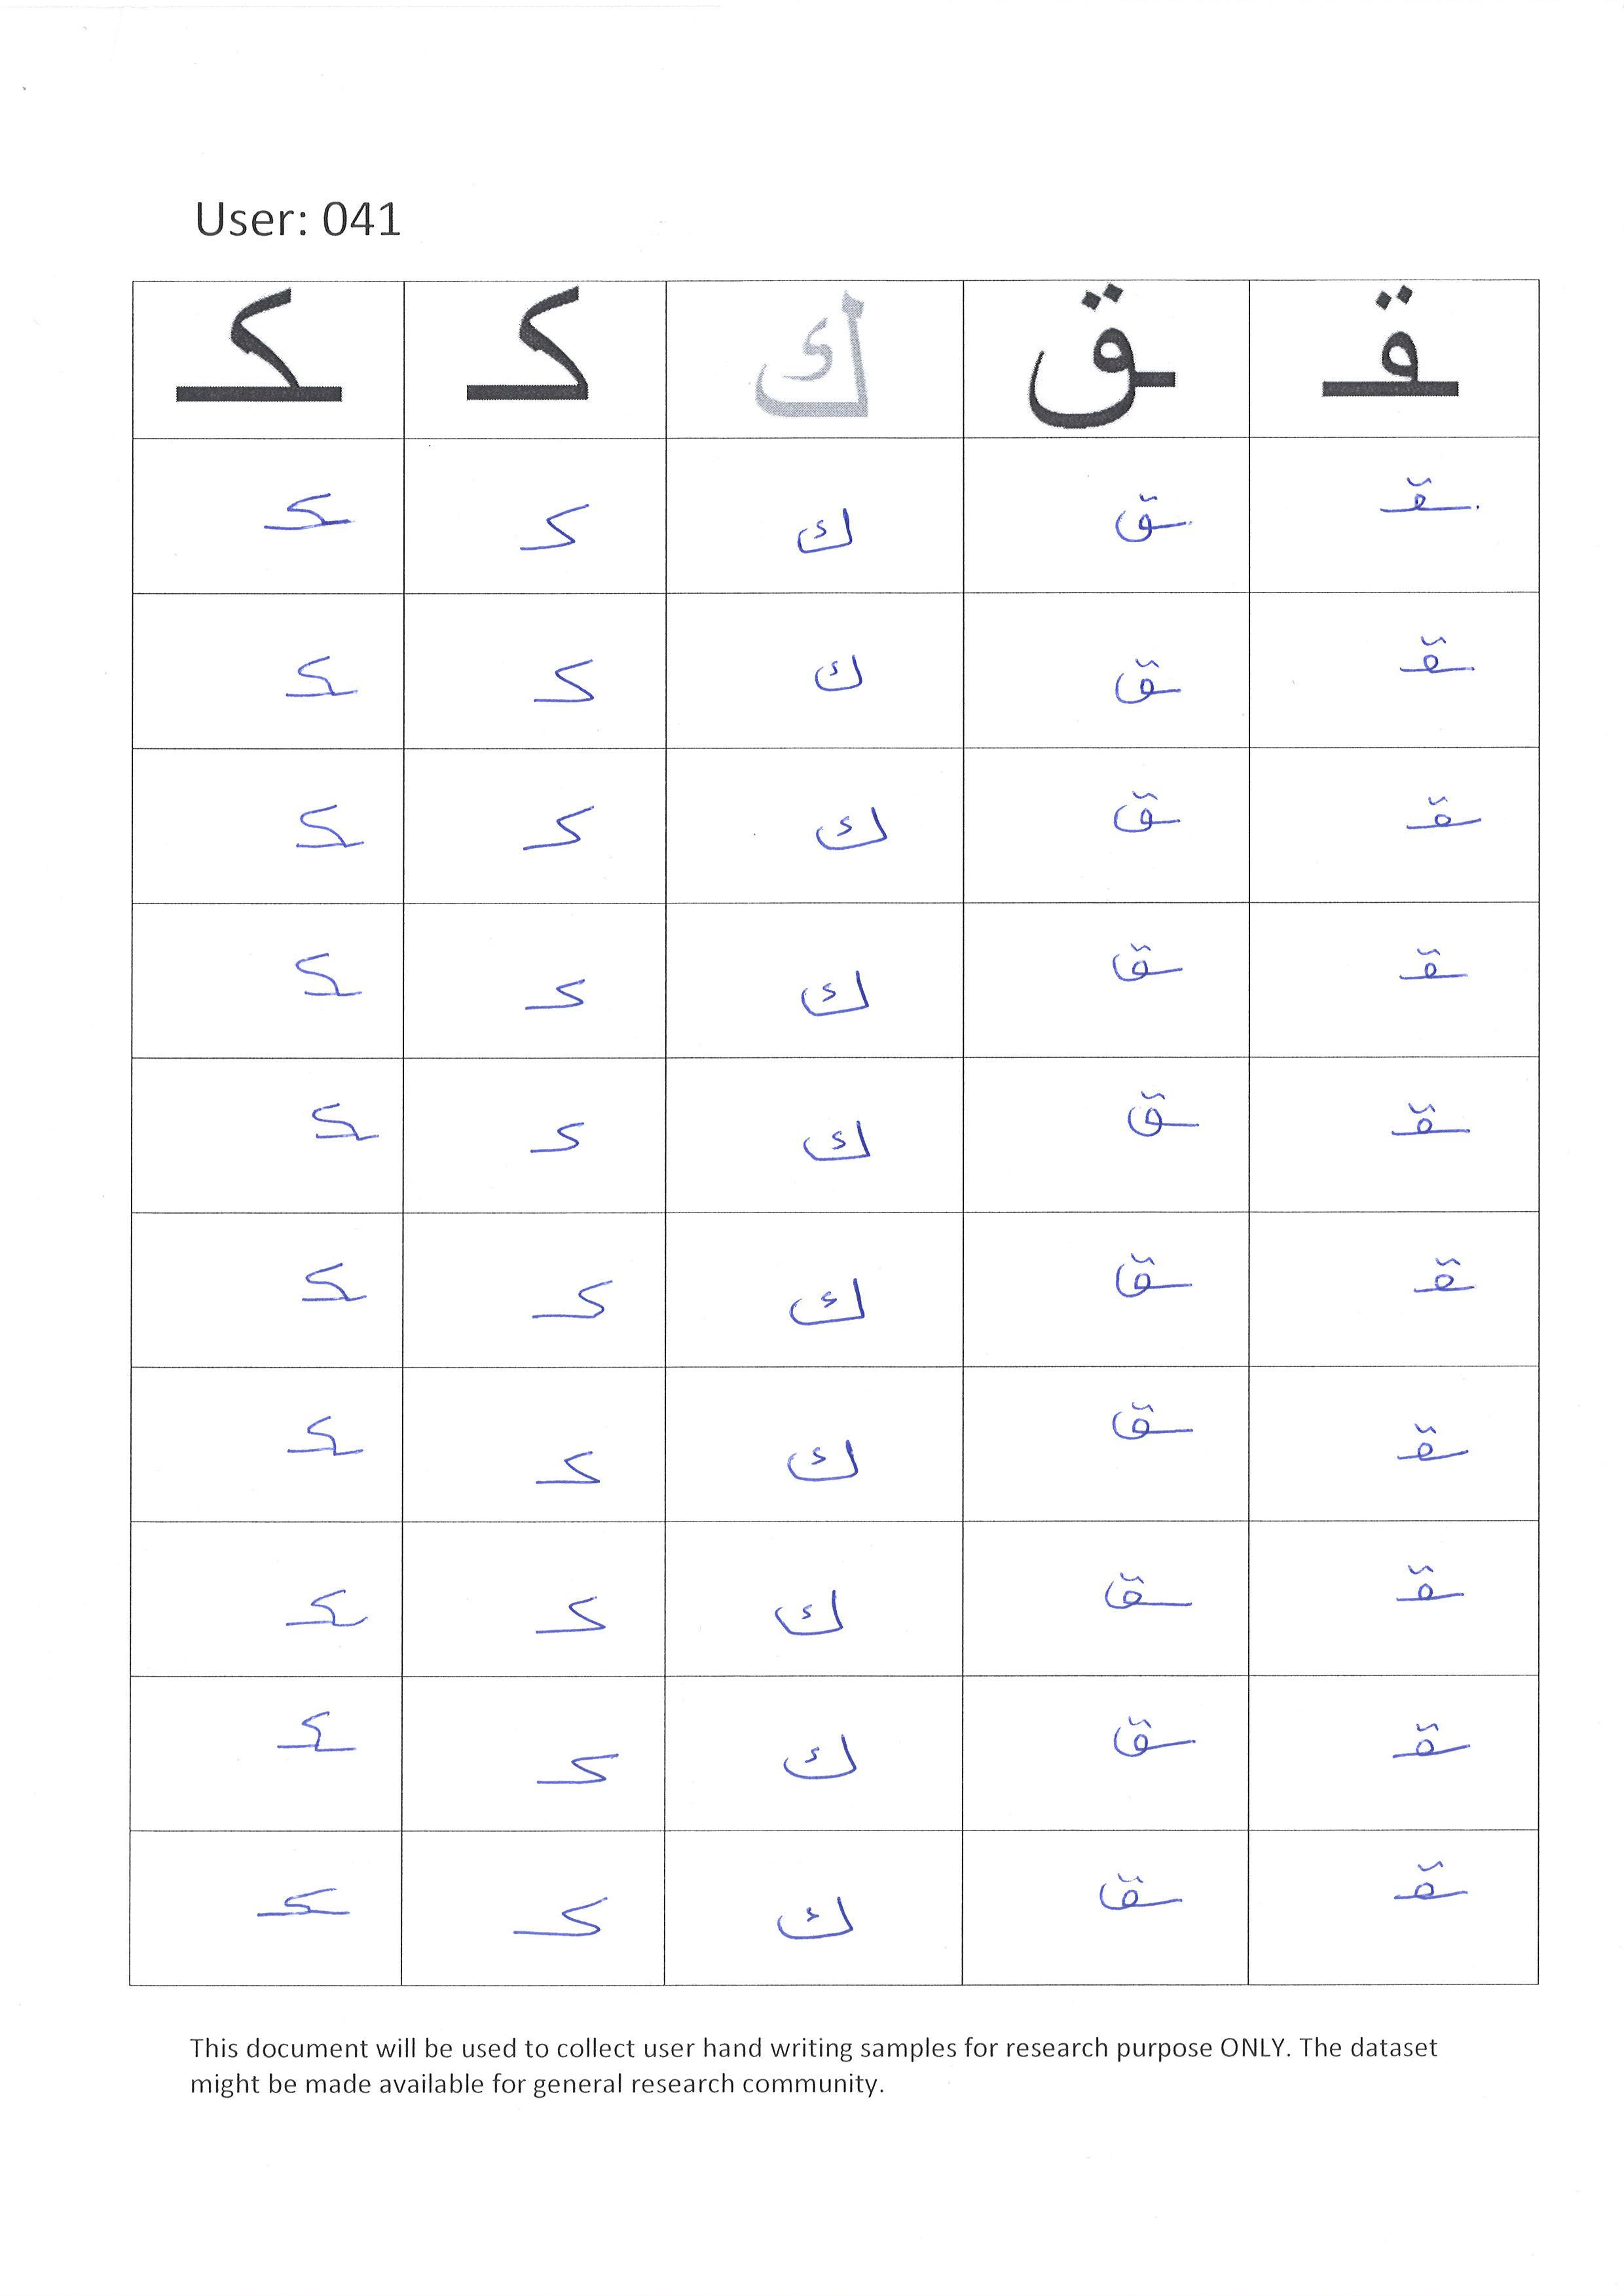 User: 041
ـقـ ـق ك كـ ـكـ
ـقـ ـق ك كـ ـكـ
ـقـ ـق ك كـ ـكـ
ـقـ ـق ك كـ ـكـ
ـقـ ـق ك كـ ـكـ
ـقـ ـق ك كـ ـكـ
ـقـ ـق ك كـ ـكـ
ـقـ ـق ك كـ ـكـ
ـقـ ـق ك كـ ـكـ
ـقـ ـق ك كـ ـكـ
ـقـ ـق ك كـ ـكـ
This document will be used to collect user hand writing samples for research purpose ONLY. The dataset
might be made available for general research community.